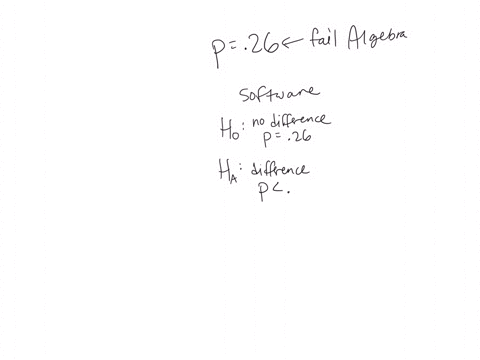 p = .26 ← fail Algebra
Software
H₀: no difference
p = .26
Hₐ: difference
p < .